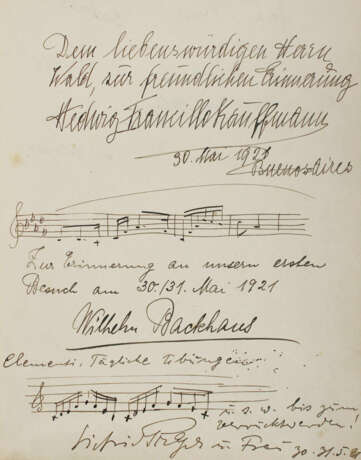 Dem liebenswürdigen Herrn
Wald, zur freundlichen Erinnerung
Hedwig Francillo Kauffmann
30. Mai 1921
Buenos Aires
Zur Erinnerung an unsern ersten
Besuch am 30./31. Mai 1921
Wilhelm Backhaus
Clementi, Tägliche Übungen
u. s. w. bis zum
verrücktwerden!
u Frau 30.31.5.21